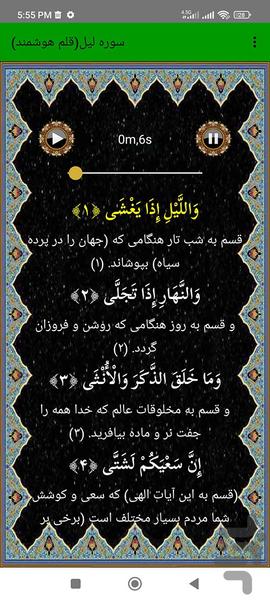 5:55 PM
4.5G
28
سوره لیل(قلم هوشمند)
0m,6s
وَاللَّيْلِ إِذَا يَغْشَى ﴿١﴾
قسم به شب تار هنگامی که (جهان را در پرده
سیاه) بپوشاند. (۱)
وَالنَّهَارِ إِذَا تَجَلَّى ﴿٢﴾
و قسم به روز هنگامی که روشن و فروزان
گردد. (۲)
وَمَا خَلَقَ الذَّكَرَ وَالْأُنْثَى ﴿٣﴾
و قسم به مخلوقات عالم که خدا همه را
جفت نر و ماده بیافرید. (۳)
إِنَّ سَعْيَكُمْ لَشَتَّى ﴿۴﴾
(قسم به این آیات الهی) که سعی و کوشش
شما مردم بسیار مختلف است (برخی بر